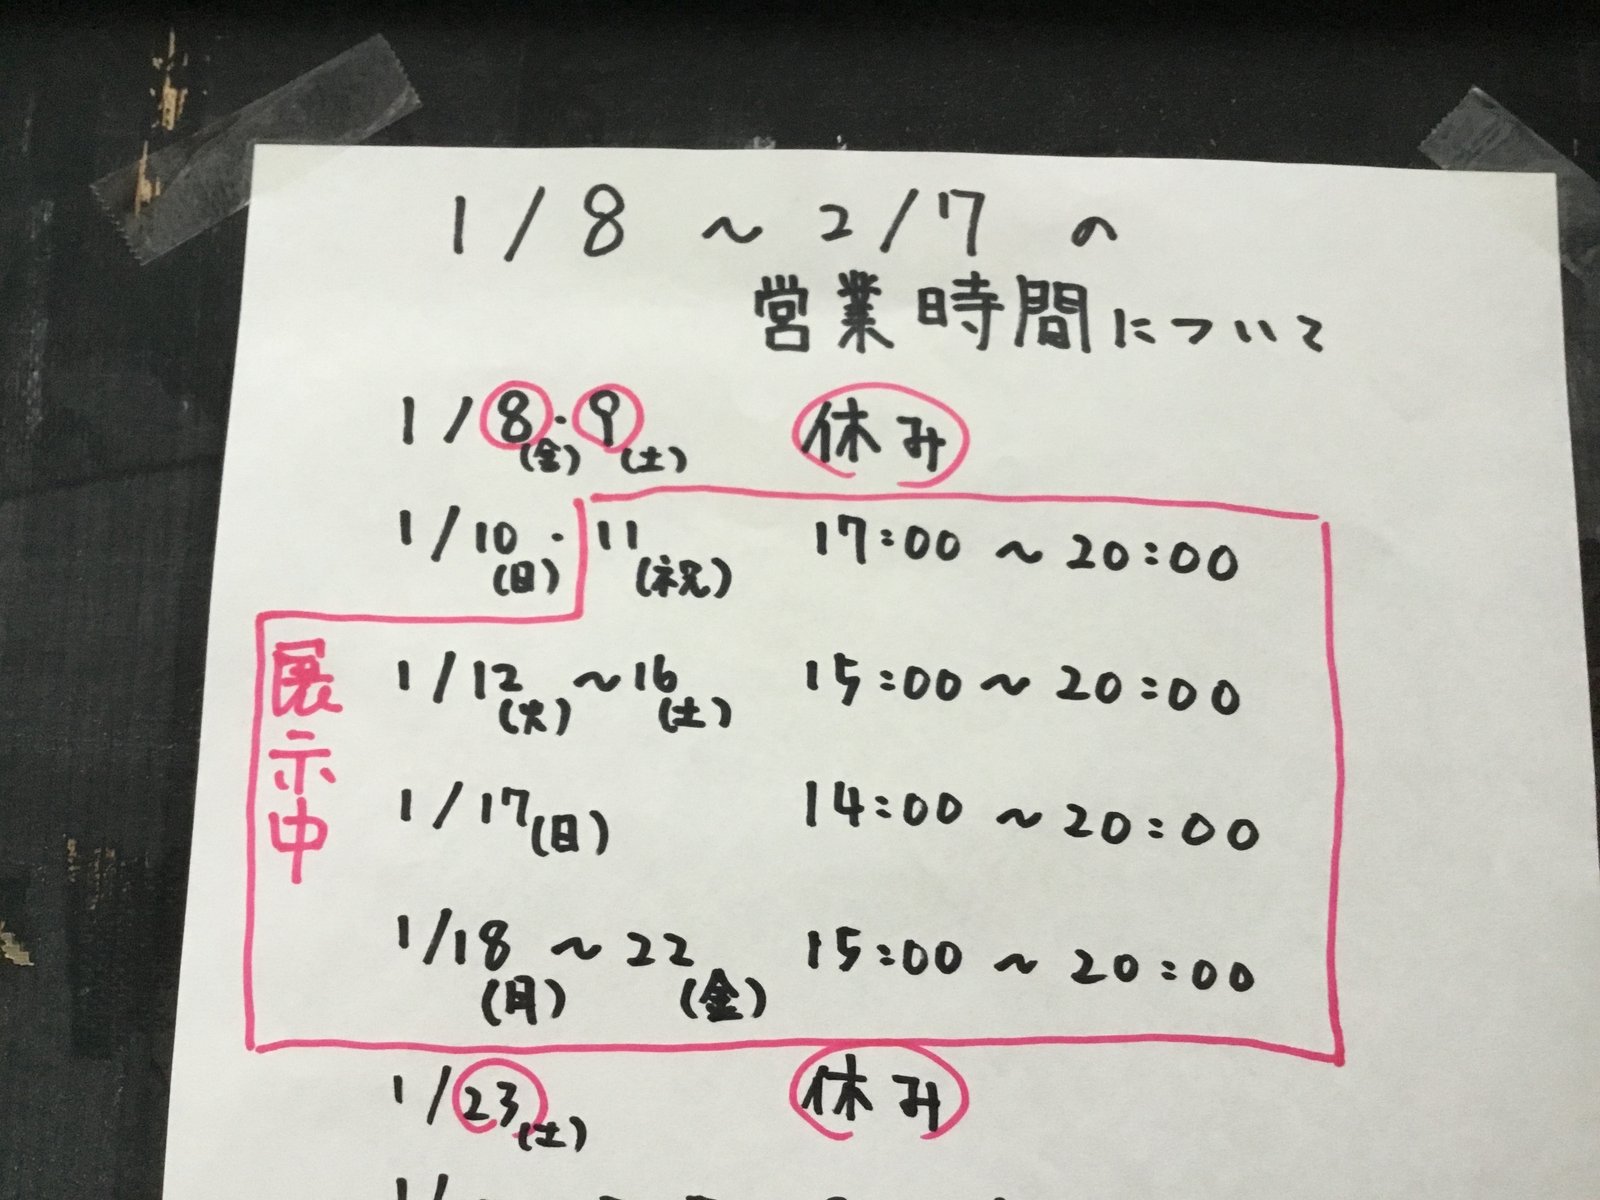 1/8 〜 2/7 の
営業時間について
1/8(金)・9(土) 休み
1/10(日)・11(祝) 17:00 〜 20:00
1/12(火) 〜 16(土) 15:00 〜 20:00
1/17(日) 14:00 〜 20:00
1/18(月) 〜 22(金) 15:00 〜 20:00
展示中
1/23(土) 休み